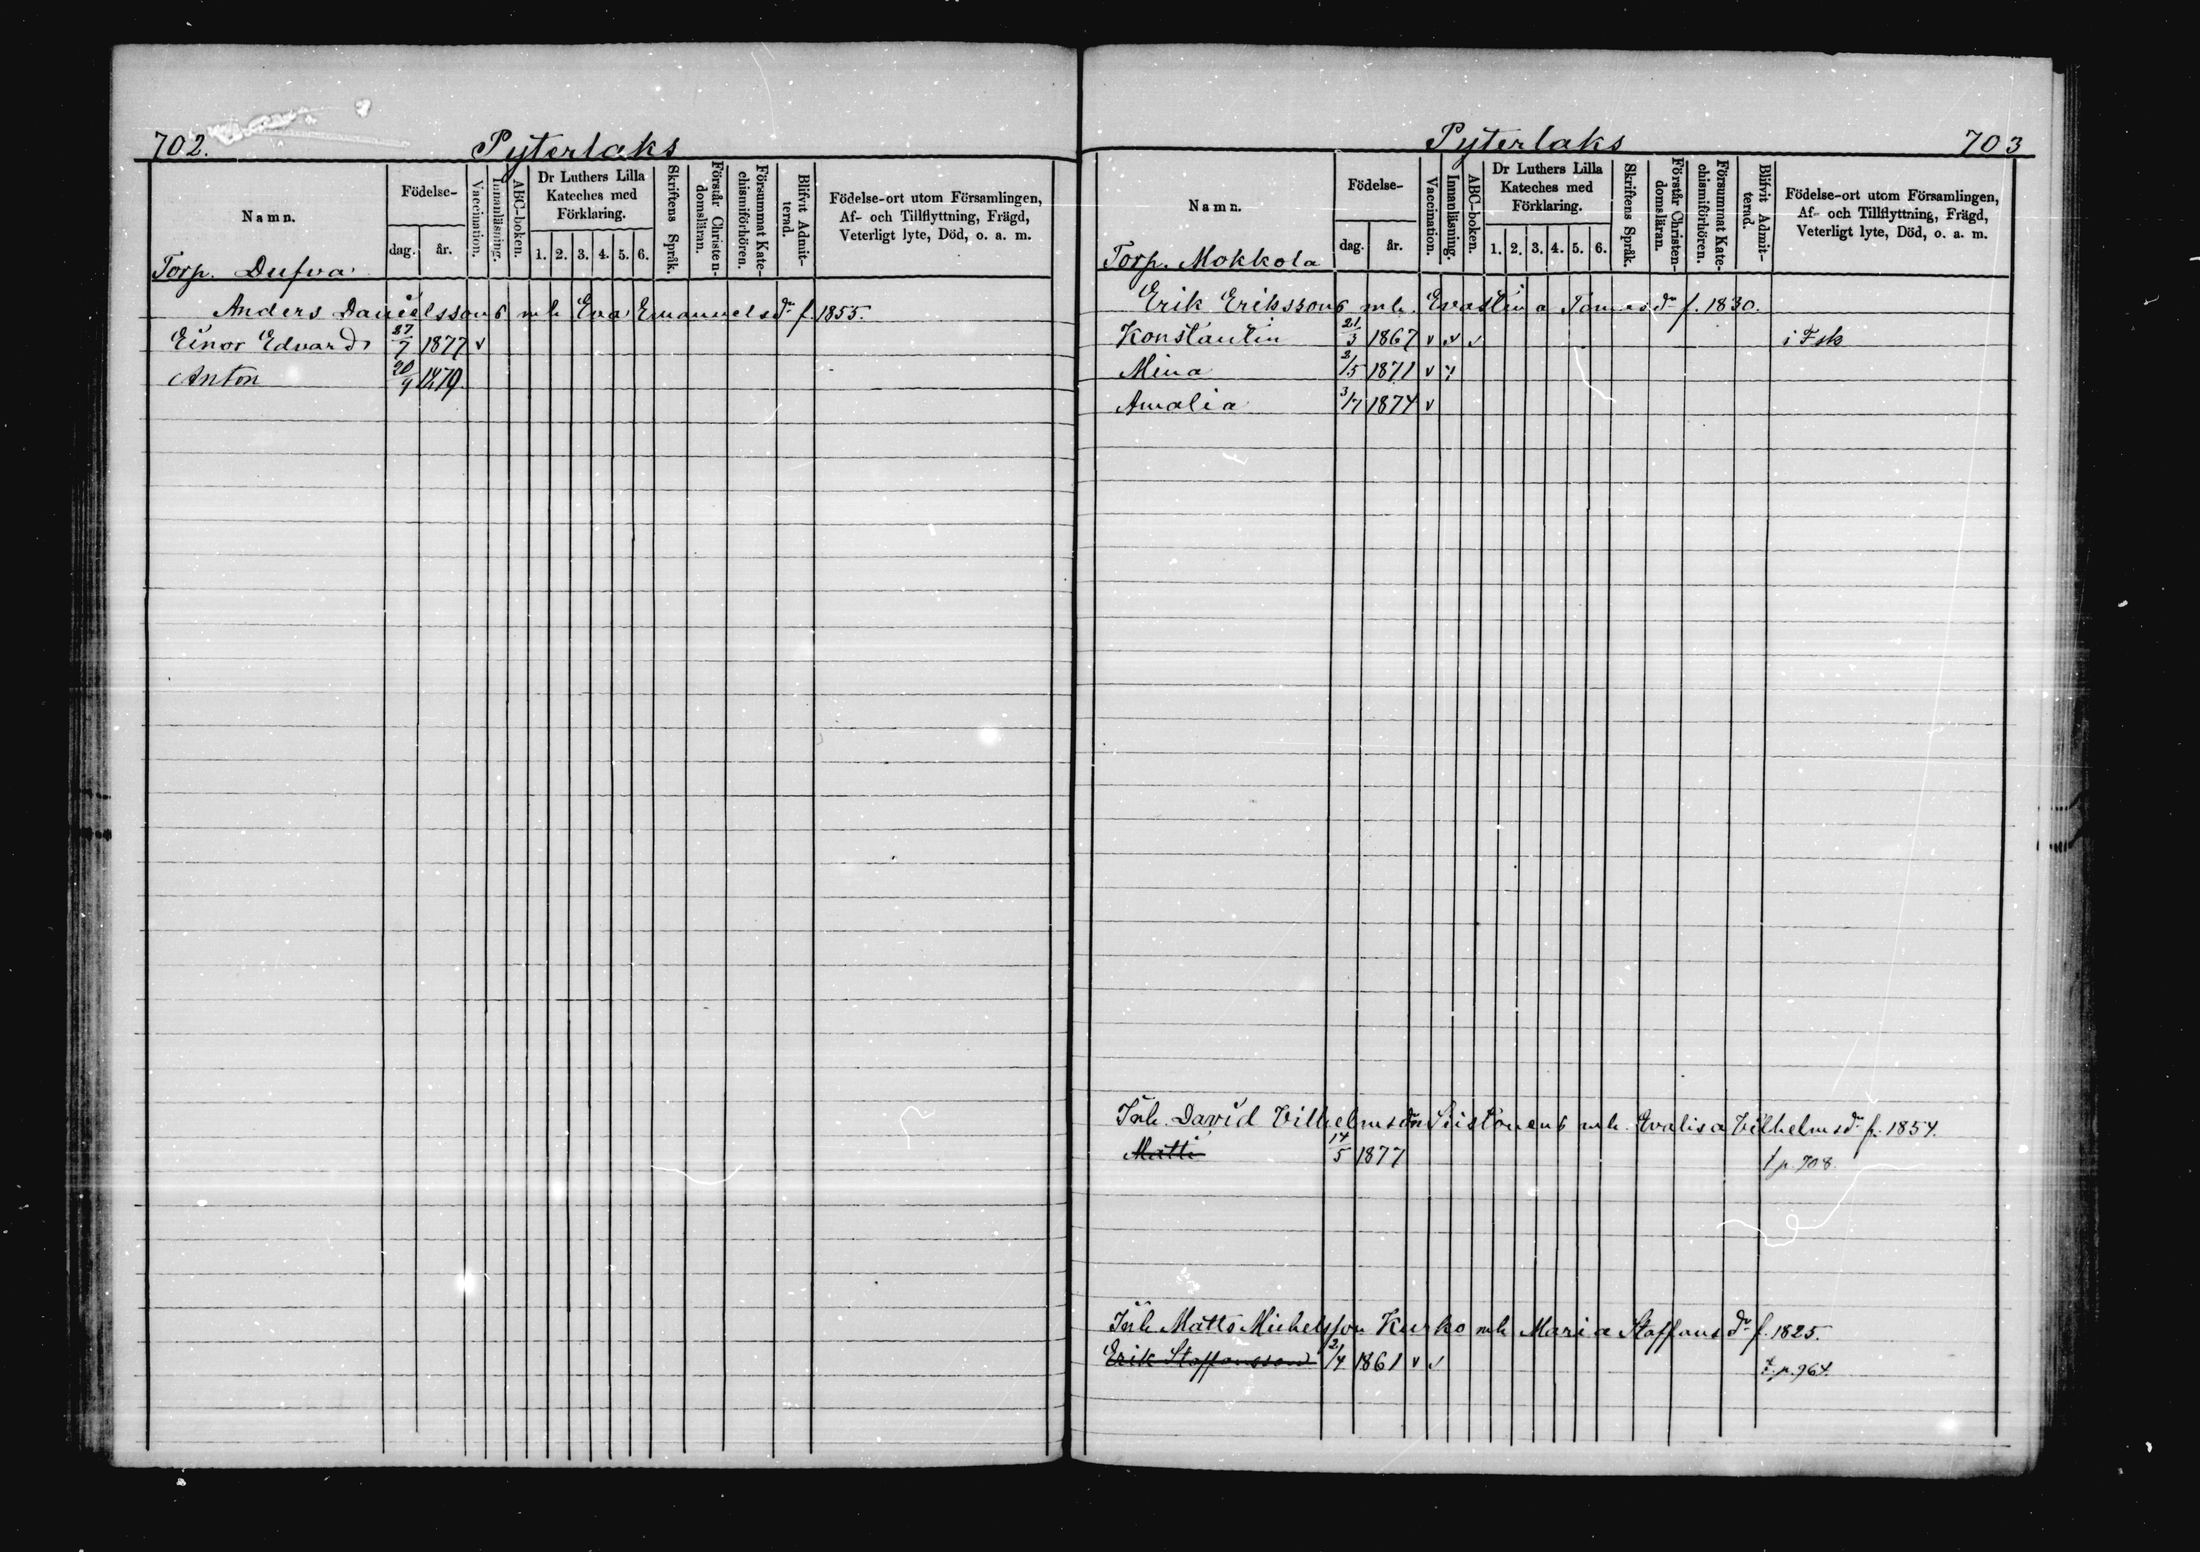 702.
Pyterlaks
Namn.
Födelse-
dag.
år.
Vaccination.
Innanläsning.
ABC-boken.
Dr Luthers Lilla
Kateches med
Förklaring.
1. 2. 3. 4. 5. 6.
Skriftens Språk.
Förstår Christen-
domsläran.
Försummat Kate-
chismiförhören.
Blifvit Admit-
terad.
Födelse-ort utom Församlingen,
Af- och Tillflyttning, Frägd,
Veterligt lyte, Död, o. a. m.
Torp. Dufva
Anders Danielssons mh Eva Emanuelsdr f. 1855.
Einor Edvard 27/7 1877 v
Anton 20/9 1879.
Pyterlaks
703
Namn.
Födelse-
dag.
år.
Vaccination.
Innanläsning.
ABC-boken.
Dr Luthers Lilla
Kateches med
Förklaring.
1. 2. 3. 4. 5. 6.
Skriftens Språk.
Förstår Christen-
domsläran.
Försummat Kate-
chismiförhören.
Blifvit Admit-
terad.
Födelse-ort utom Församlingen,
Af- och Tillflyttning, Frägd,
Veterligt lyte, Död, o. a. m.
Torp. Mokkola
Erik Erikssons mh. Evastina Tomasdr f. 1830.
Konstantin 21/3 1867 v v v i Fsk
Mina 2/5 1871 v
Amalia 3/7 1874 v
Inh. David Vilhelmsson mh. Evalisa Vilhelmsdr f. 1854.
Matti 14/5 1877 t p. 708.
Inh Matts Michelsson Kurko mh Maria Staffansdr f. 1825.
Erik Staffansson 1861 v v t. p. 964.